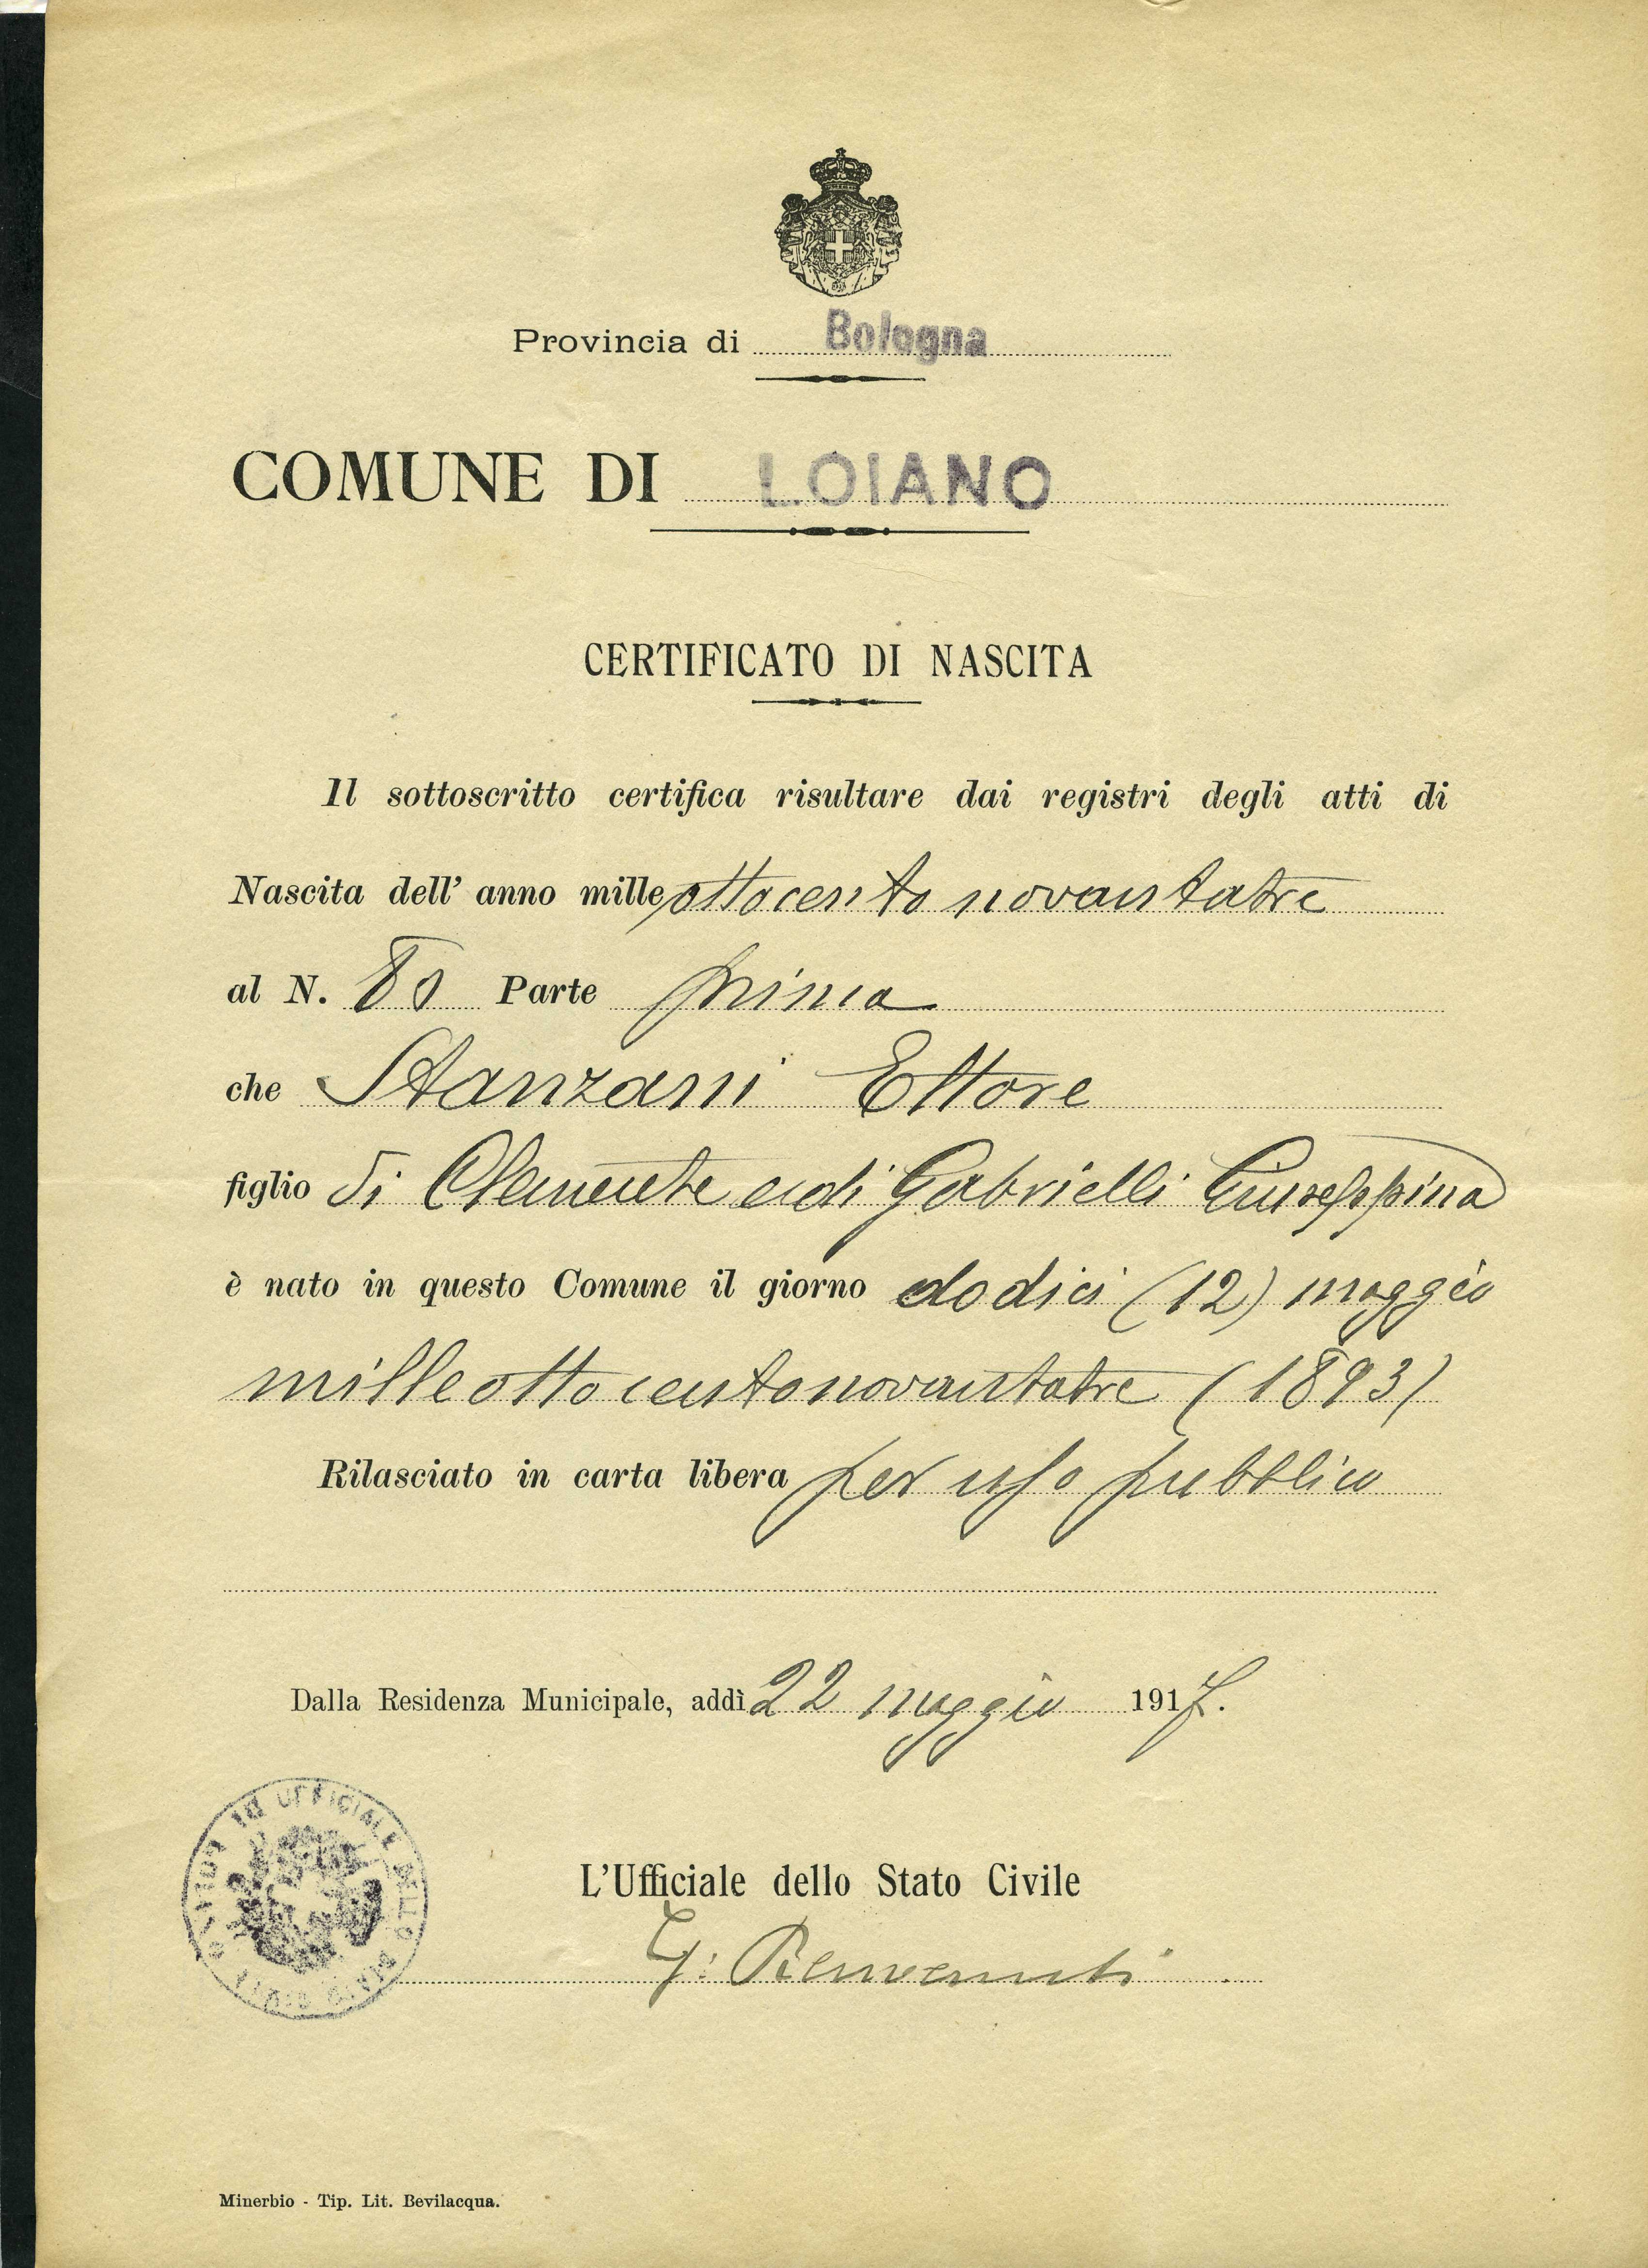 Provincia di Bologna
COMUNE DI LOIANO
CERTIFICATO DI NASCITA
Il sottoscritto certifica risultare dai registri degli atti di
Nascita dell' anno mille ottocento novantatre
al N. 80 Parte prima
che Stanzani Ettore
figlio di Clemente e di Gabrielli Giuseppina
è nato in questo Comune il giorno dodici (12) maggio
milleottocentonovantatre (1893)
Rilasciato in carta libera per uso pubblico
Dalla Residenza Municipale, addì 22 maggio 1917.
UFFICIALE DELLO STATO CIVILE
L'Ufficiale dello Stato Civile
G. Benvenuti
Minerbio - Tip. Lit. Bevilacqua.